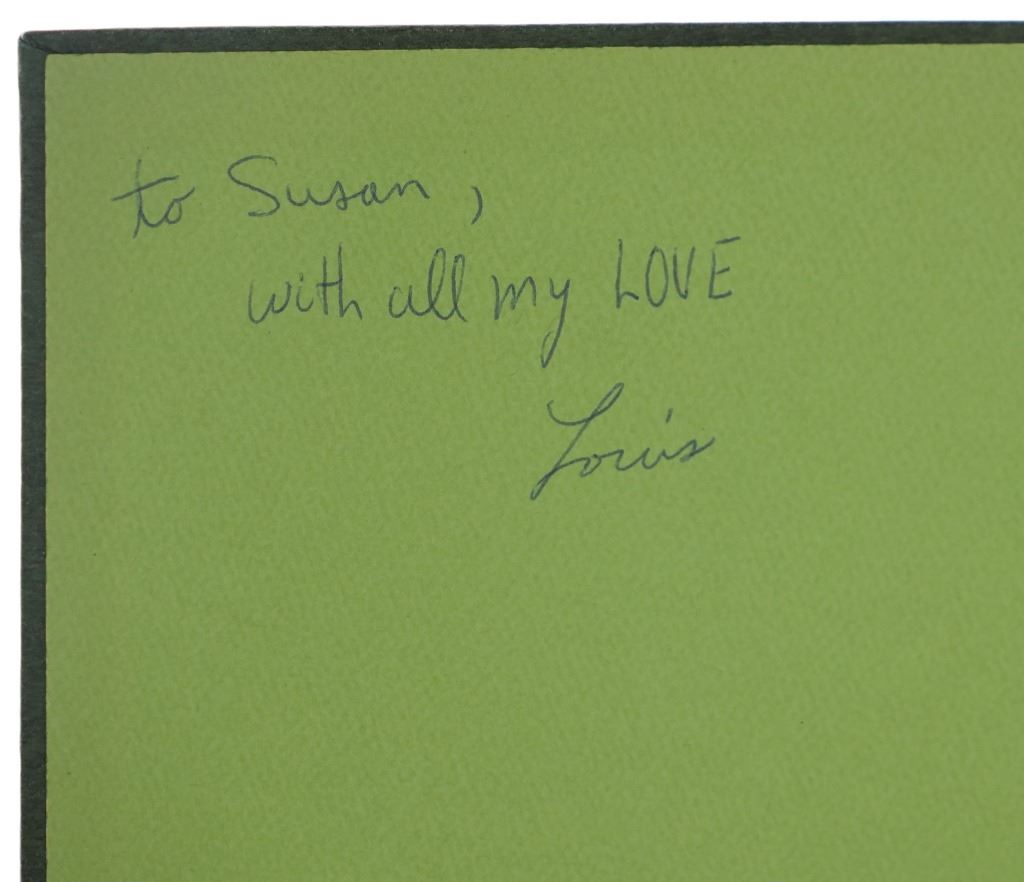 to Susan,
with all my LOVE
Louis